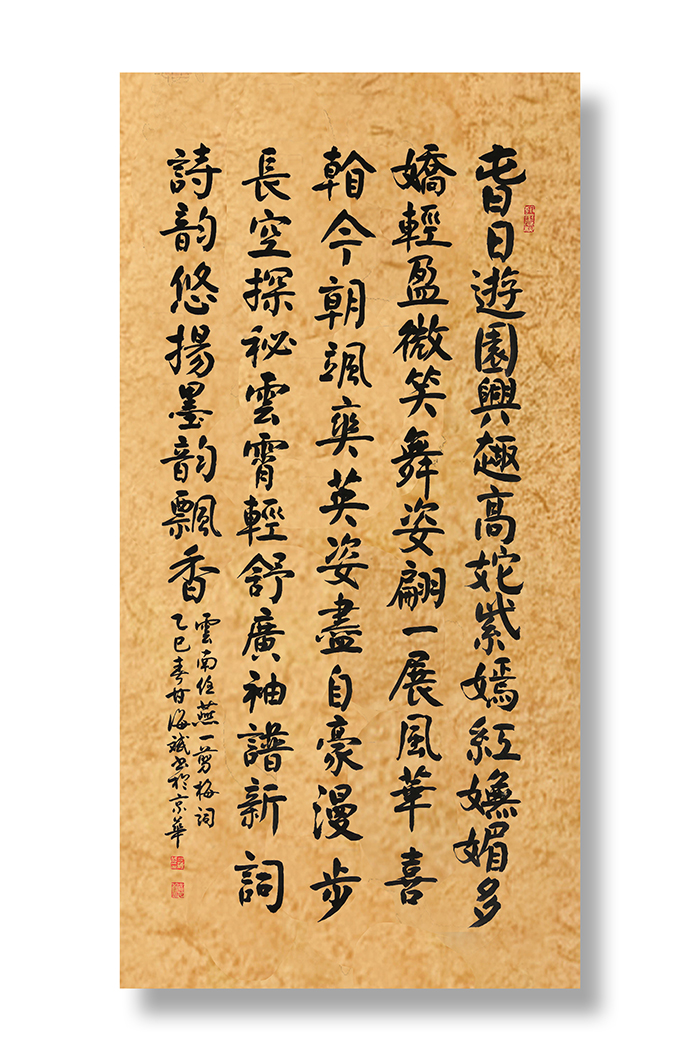 旾日遊園興趣高姹紫嫣紅嫵媚多
嬌輕盈微笑舞姿翩一展風華喜
看今朝颯爽英姿盡自豪漫步
長空探秘雲霄輕舒廣袖譜新詞
詩韵悠揚墨韵飄香
雲南任燕一剪梅詞
乙巳春甘海斌書於京華